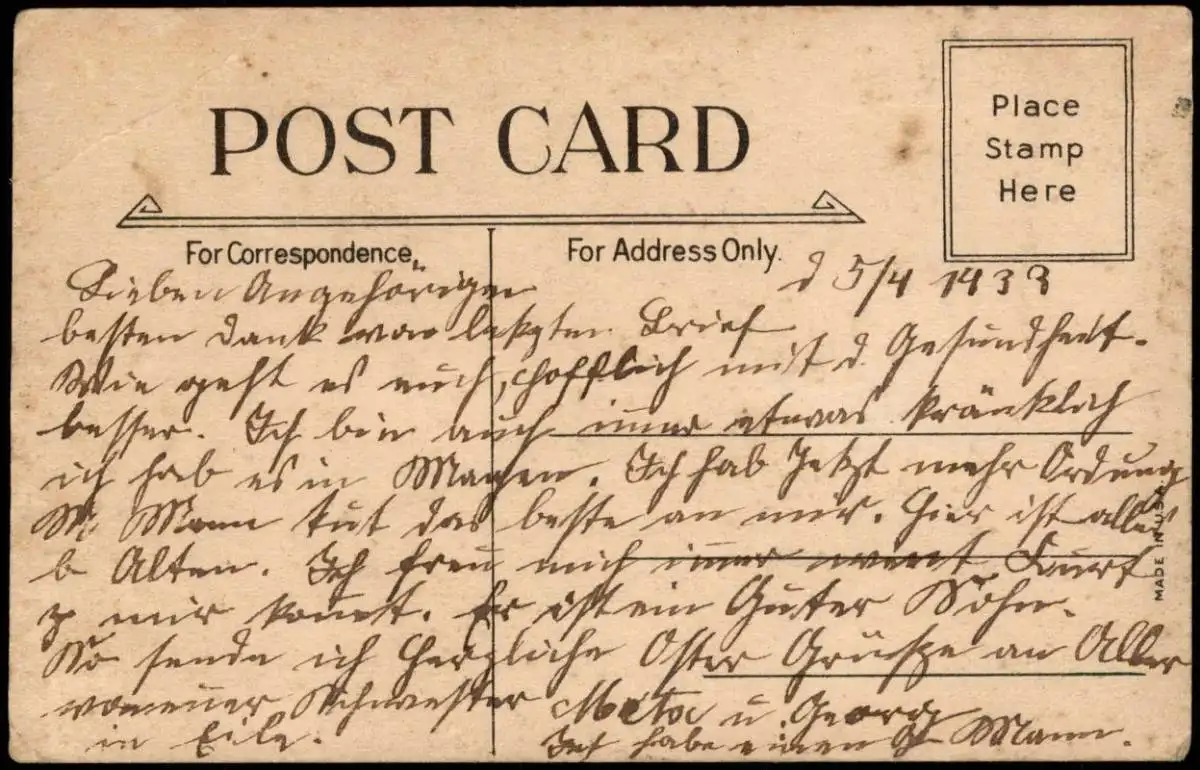 POST CARD
Place
Stamp
Here
For Correspondence
For Address Only.
d 5/4 1933
Lieben Angehörigen
besten Dank vor letzten Brief
Wie geht es euch, hoffflich mit d. Gesundheit.
besser. Ich bin auch immer etwas kränklich
ich hab es in Magen. Ich hab Jetzt mehr Ordung
M. Mann tut das beste an mir. Hier ist alles
b Alten. Ich freu mich immer wennt Kurt
z mir kommt. Er ist ein Guter Sohn.
So sende ich Herzliche Oster Grüsze an Aller
von euer Schwester Meta u. Georg
in Eile. Ich habe einen G Mann.
MADE IN U.S.A.